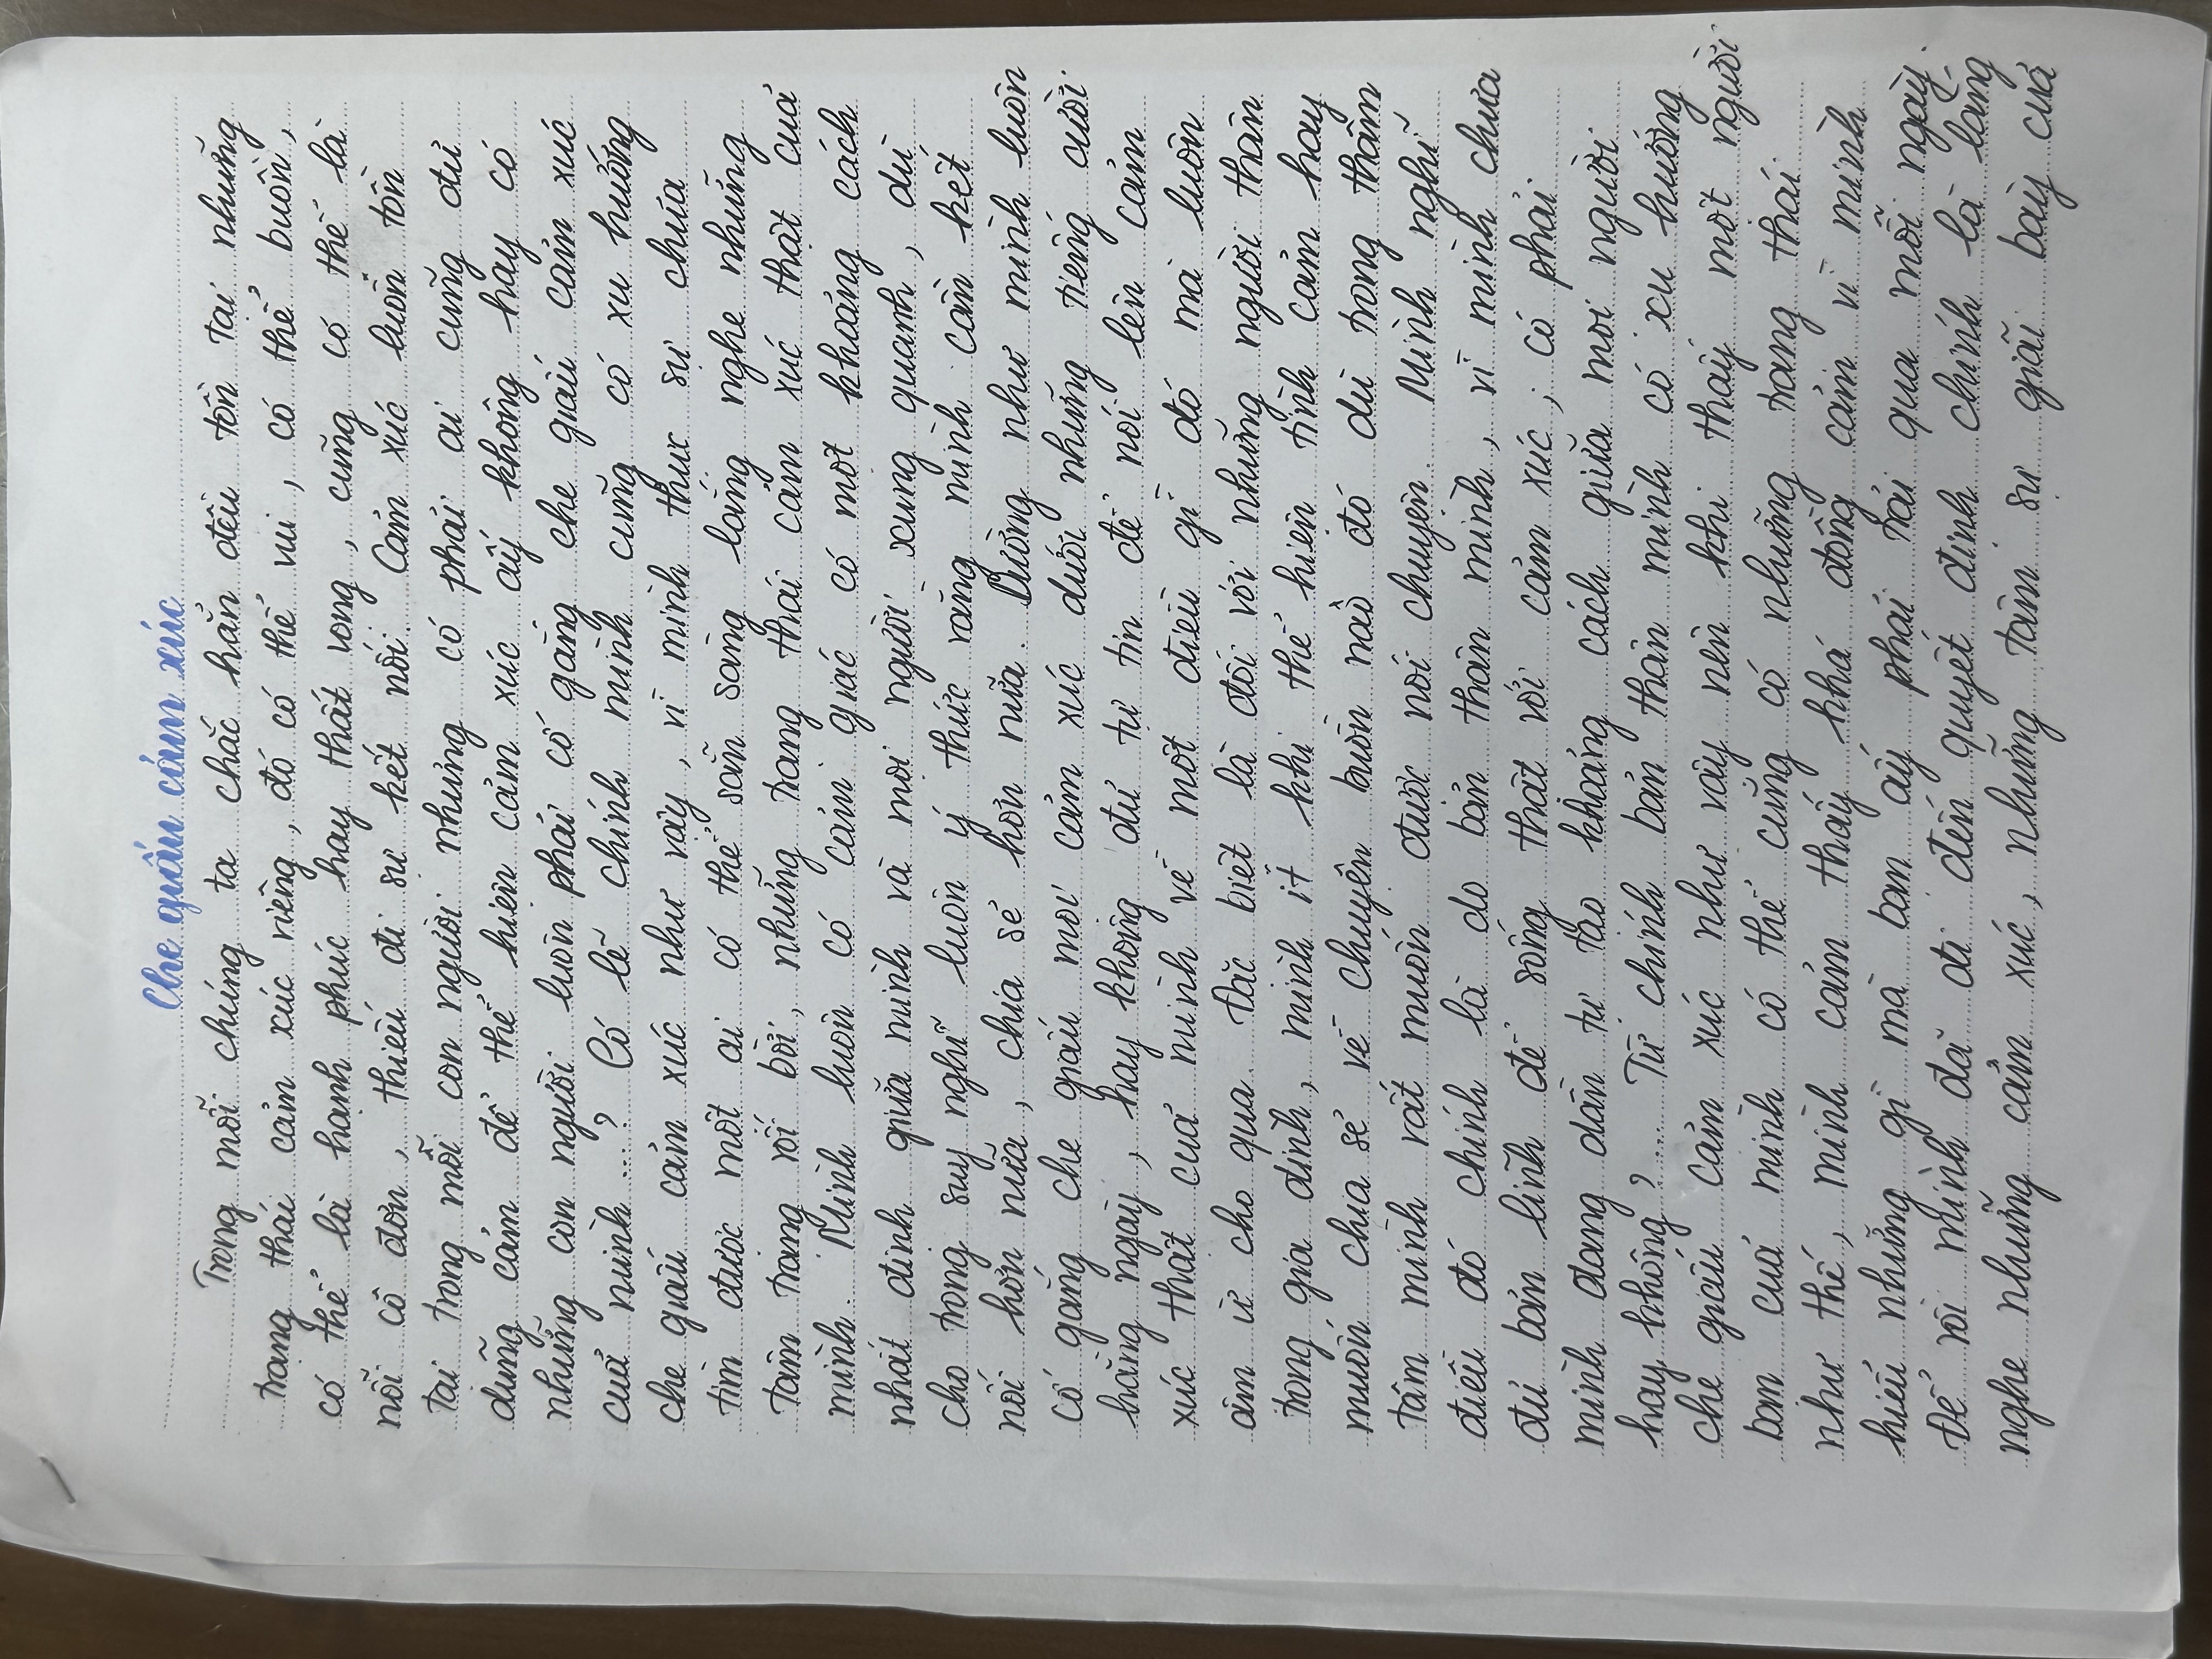 Che giấu cảm xúc
Trong mỗi chúng ta chắc hẳn đều tồn tại những
trạng thái cảm xúc riêng, đó có thể vui, có thể buồn,
có thể là hạnh phúc hay thất vọng, cũng có thể là
nỗi cô đơn, thiếu đi sự kết nối. Cảm xúc luôn tồn
tại trong mỗi con người nhưng có phải ai cũng đủ
dũng cảm để thể hiện cảm xúc ấy không hay có
những con người luôn phải cố gắng che giấu cảm xúc
của mình...? Có lẽ chính mình cũng có xu hướng
che giấu cảm xúc như vậy, vì mình thực sự chưa
tìm được một ai có thể sẵn sàng lắng nghe những
tâm trạng rối bời, những trạng thái cảm xúc thật của
mình. Mình luôn có cảm giác có một khoảng cách
nhất định giữa mình và mọi người xung quanh, dù
cho trong suy nghĩ luôn ý thức rằng mình cần kết
nối hơn nữa, chia sẻ hơn nữa. Dường như mình luôn
cố gắng che giấu mọi cảm xúc dưới những tiếng cười
hằng ngày, hay không đủ tự tin để nói lên cảm
xúc thật của mình về một điều gì đó mà luôn
ậm ừ cho qua. Đặc biệt là đối với những người thân
trong gia đình, mình ít khi thể hiện tình cảm hay
muốn chia sẻ về chuyện buồn nào đó dù trong thâm
tâm mình rất muốn được nói chuyện. Mình nghĩ
điều đó chính là do bản thân mình, vì mình chưa
đủ bản lĩnh để sống thật với cảm xúc; có phải
mình đang dần tự tạo khoảng cách giữa mọi người
hay không?... Từ chính bản thân mình có xu hướng
che giấu cảm xúc như vậy nên khi thấy một người
bạn của mình có thể cũng có những trạng thái
như thế, mình cảm thấy khá đồng cảm vì mình
hiểu những gì mà bạn ấy phải trải qua mỗi ngày.
Để rồi mình đã đi đến quyết định chính là lắng
nghe những cảm xúc, những tâm sự giãi bày của